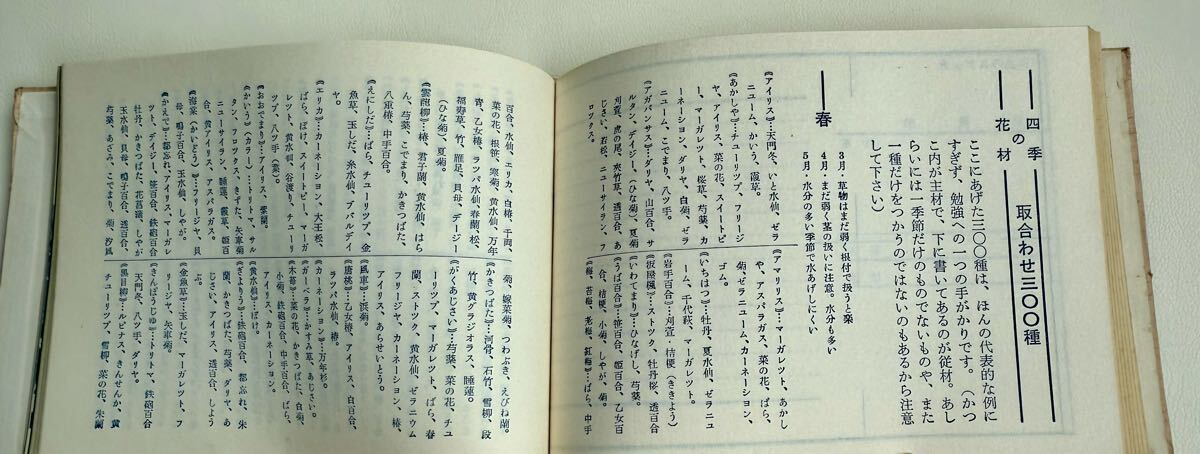 四季の
花材
取合わせ三〇〇種
ここにあげた三〇〇種は、ほんの代表的な例に
すぎず、勉強への一つの手がかりです。（かつ
こ内が主材で、下に書いてあるのが従材。あし
らいには一季節だけのものでないものや、また
一種だけをつかうのではないのもあるから注意
して下さい）
春
3月・草物はまだ弱く根付で扱うと楽
4月・まだ弱く茎の扱いに注意。水分も多い
5月・水分の多い季節で水あげしにくい
《アイリス》…天門冬、いと水仙、ゼラ
ニューム、かいう、霞草。
《あかしや》…チューリップ、フリージ
ヤ、アイリス、菜の花、スイートピ
ー、マーガレット、桜草、芍薬、カ
ーネーション、ダリヤ、白菊、ゼラ
ニューム、こでまり、八ツ手。
《アガパンサス》…ダリヤ、山百合、サ
ルタン、デイジー、（ひな菊）、夏菊
刈萱、虎の尾、夾竹草、透百合、あ
じさい、若松、ニューサイラン、フ
ロックス。
《アマリリス》…マーガレット、あかし
や、アスパラガス、菜の花、ばら、
菊、ゼラニューム、カーネーション、
ゴム。
《いちはつ》…牡丹、夏水仙、ゼラニュ
ーム、千代萩、マーガレット。
《岩手百合》…刈萱・桔梗（ききよう）
《板屋楓》…ストック、牡丹桜、透百合
《いわてまり》…ひなげし、芍薬。
《うば百合》…笹百合、姫百合、乙女百
合、桔梗、小菊、しやが、菊。
《梅、苔梅、老梅、紅梅》…ばら、中手
百合、水仙、エリカ、白椿、千両、
菜の花、根笹、寒菊、黄水仙、万年
青、乙女椿、ラッパ水仙、春蘭、松、
福寿草、竹、雁足、貝母、デージー
（ひな菊）、夏菊。
《雲龍柳》…椿、君子蘭、黄水仙、はら
ん、芍薬、こでまり、かきつばた、
八重椿、中菊。
《えにしだ》…ばら、チューリップ、金
魚草、玉しだ、糸水仙、ブバルデイ
ヤ。
《エリカ》…カーネーション、大王松、
ばら、ぼけ、スイートピー、マーガ
レット、黄水仙、谷渡り、チューリ
ップ、八ツ手（葉）。
《おおでまり》…アイリス、紫蘭。
《かいう》（カラー）…トリトマ、サル
タン、フロックス、きすげ、矢車菊
ニューサイラン、睡蓮、霞草、姫百
合、黄アイリス、アスパラガス。
《海棠》（かいどう）…フリージヤ、貝
母、鳴子百合、玉水仙、しやが。
《かえで》…都忘れ、アイリス、マーガレ
ット、デイジー、笹百合、鉄砲百合
牡丹、かきつばた、花菖蒲、しやが
玉水仙、貝母、鳴子百合、透百合、
芍薬、あざみ、こでまり、菊、沙風
菊、嫁菜菊、つわぶき、えびね蘭。
《かきつばた》…河骨、石竹、雪柳、段
竹、黄グラジオラス、睡蓮。
《がくあじさい》…芍薬、菜の花、チュ
ーリップ、マーガレット、ばら、春
蘭、ストック、黄水仙、ゼラニウム
フリージヤ、カーネーション、椿、
アイリス、あらせいとう。
《風車》…浜菊。
《唐桃》…乙女椿、アイリス、白百合、
ラッパ水仙、椿。
《カーネーション》…万年杉。
《ガーベラ》…かすみ草、あじさい。
《木苺》…菜の花、かきつばた、白菊、
小菊、鉄砲百合、中手百合、ばら、
アイリス、カーネーション。
《黄水仙》…ぼけ。
《ぎようりう》…鉄砲百合、都忘れ、朱
蘭、かきつばた、芍薬、ダリヤ、あ
じさい、アイリス、透百合、しよう
ぶ。
《金魚草》…玉しだ、マーガレット、フ
リージヤ、矢車菊。
《きんぽうじゅ》…トリトマ、鉄砲百合
天門冬、八ツ手、ダリヤ。
《黒目柳》…ルピナス、きんせんか、黄
チューリップ、雪柳、菜の花、朱蘭